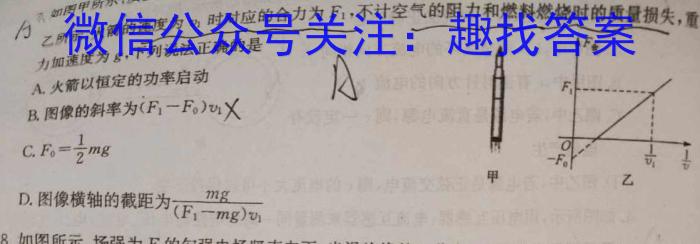 如图甲所示,
微信公众号关注：趣找答案
时对应的合力为F₁,不计空气的阻力和燃料燃烧时的质量损失,重
力加速度为g,下列说法正确的是
A.火箭以恒定的功率启动
B.图像的斜率为(F₁-F₀)v₁ X
C. F₀=\frac{1}{2}mg
D.图像横轴的截距为\frac{mg}{(F₁-mg)v₁}
F₁
O
-F₀
\frac{1}{v₁}
\frac{1}{v}
甲
乙
8.如图所示,场强为E的匀强电场竖直向下